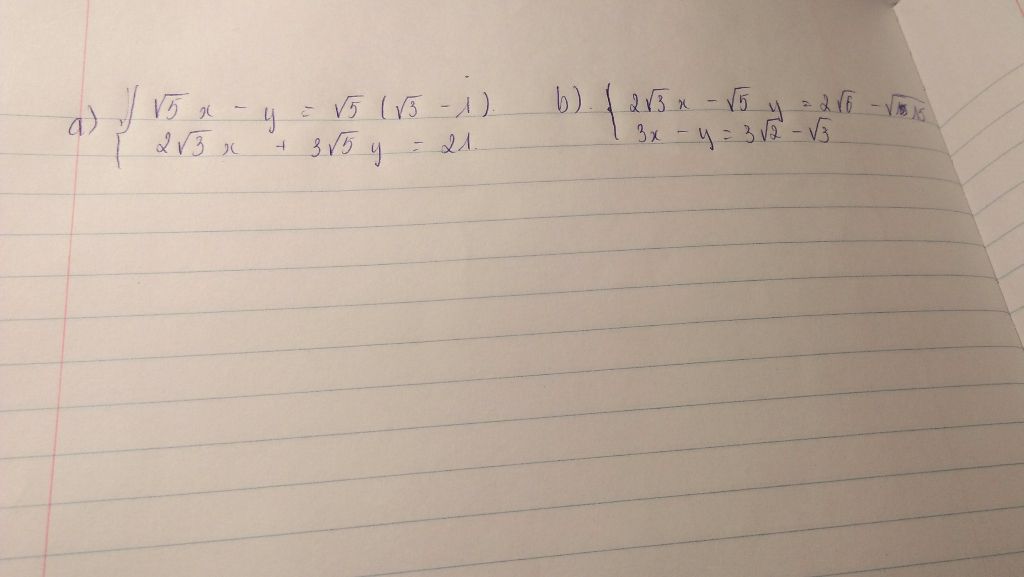 a) { √5 x - y = √5 (√3 - 1).
2√3 x + 3√5 y = 21.
b). { 2√3 x - √5 y = 2√6 - √15
3x - y = 3√2 - √3